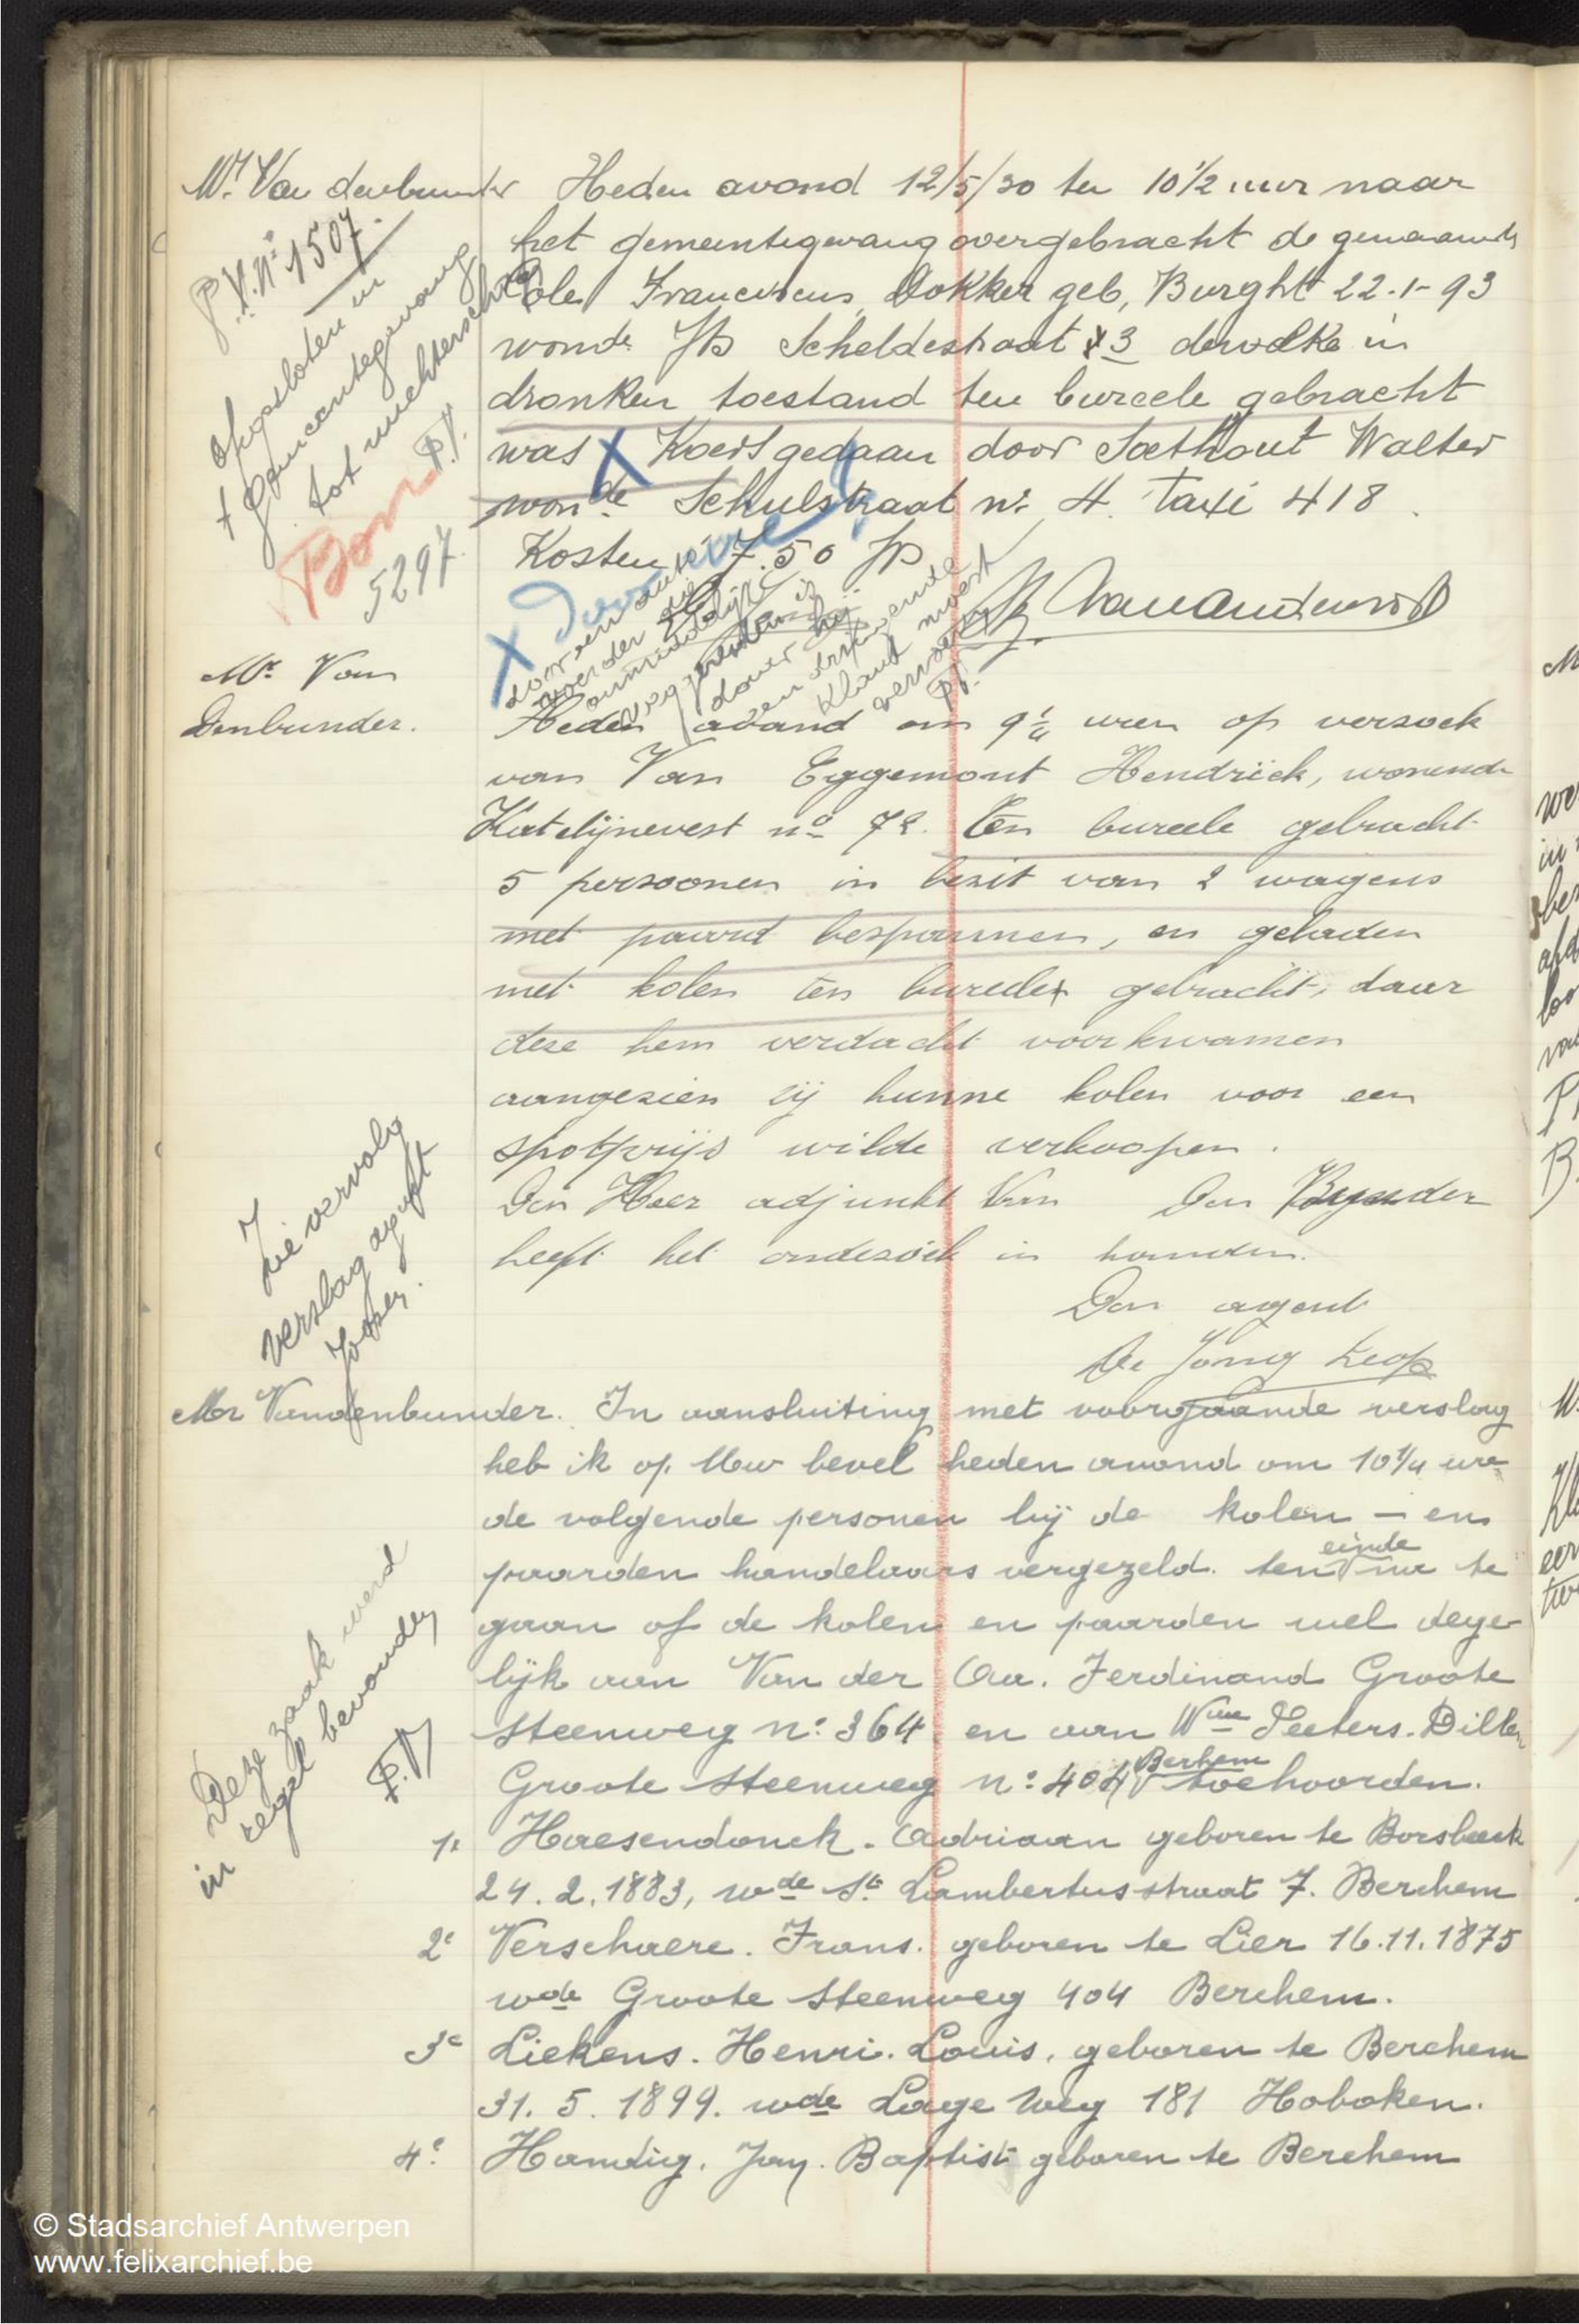 Mr Van denbunder Heden avond 12/5/30 ten 10 1/2 uur naar
het gemeentegevang overgebracht de genaamde
Cole Franciscus, Dokker geb, Burght 22-1-93
wonde Scheldestraat 3 dewelke in
dronken toestand ten bureele gebracht
was X Koers gedaan door Soethout Walter
wonde Schulstraat nr 4. taxi 418.
Kosten 7.50
P.V. n° 1507.
opgesloten in
t gemeentegevang
tot nuchterschap
P.V.
Bon
5297
X
door een auto
voerder die
onmiddelijk
weggereden is
daar hij
een dringende
klant moest
Mr. Van
Denbunder.
Heden avond om 9 1/4 uren op versoek
van Van Eggemont Hendrick, wonende
Katelijnevest n° 72. Ten bureele gebracht
5 persoonen in bezit van 2 wagens
met paard bespannen, en geladen
met kolen ten bureele gebracht, daar
deze hem verdacht voorkwamen
aangezien zij hunne kolen voor een
spotprijs wilde verkoopen.
Den Heer adjunkt Van Den Bunder
heeft het onderzoek in handen.
Den agent
De Jong Leop
Zie vervolg
verslag agent
Mr Vandenbunder. In aansluiting met voorgaande verslag
heb ik op Uw bevel heden avond om 10 1/4 ure
de volgende personen bij de kolen – en
paarden handelaars vergezeld. ten einde na te
gaan of de kolen en paarden wel dege-
lijk aan Van der Aa. Ferdinand Groote
steenweg n: 364 en aan Wwe Peeters. Dillen
Groote steenweg n: 404 Berhem toehoorden.
Deze zaak werd
in regel bevonden
P.V
1e Haesendonck. Adriaan geboren te Borsbeek
24.2.1883, wde St. Lambertusstraat 7. Berchem
2e Verschaere. Frans. geboren te Lier 16.11.1875
wde Groote Steenweg 404 Berchem.
3e Liekens. Henri. Louis. geboren te Berchem
31. 5. 1899. wde Lage Weg 181 Hoboken.
4e. Handig. Jan. Baptist geboren te Berchem
© Stadsarchief Antwerpen
www.felixarchief.be